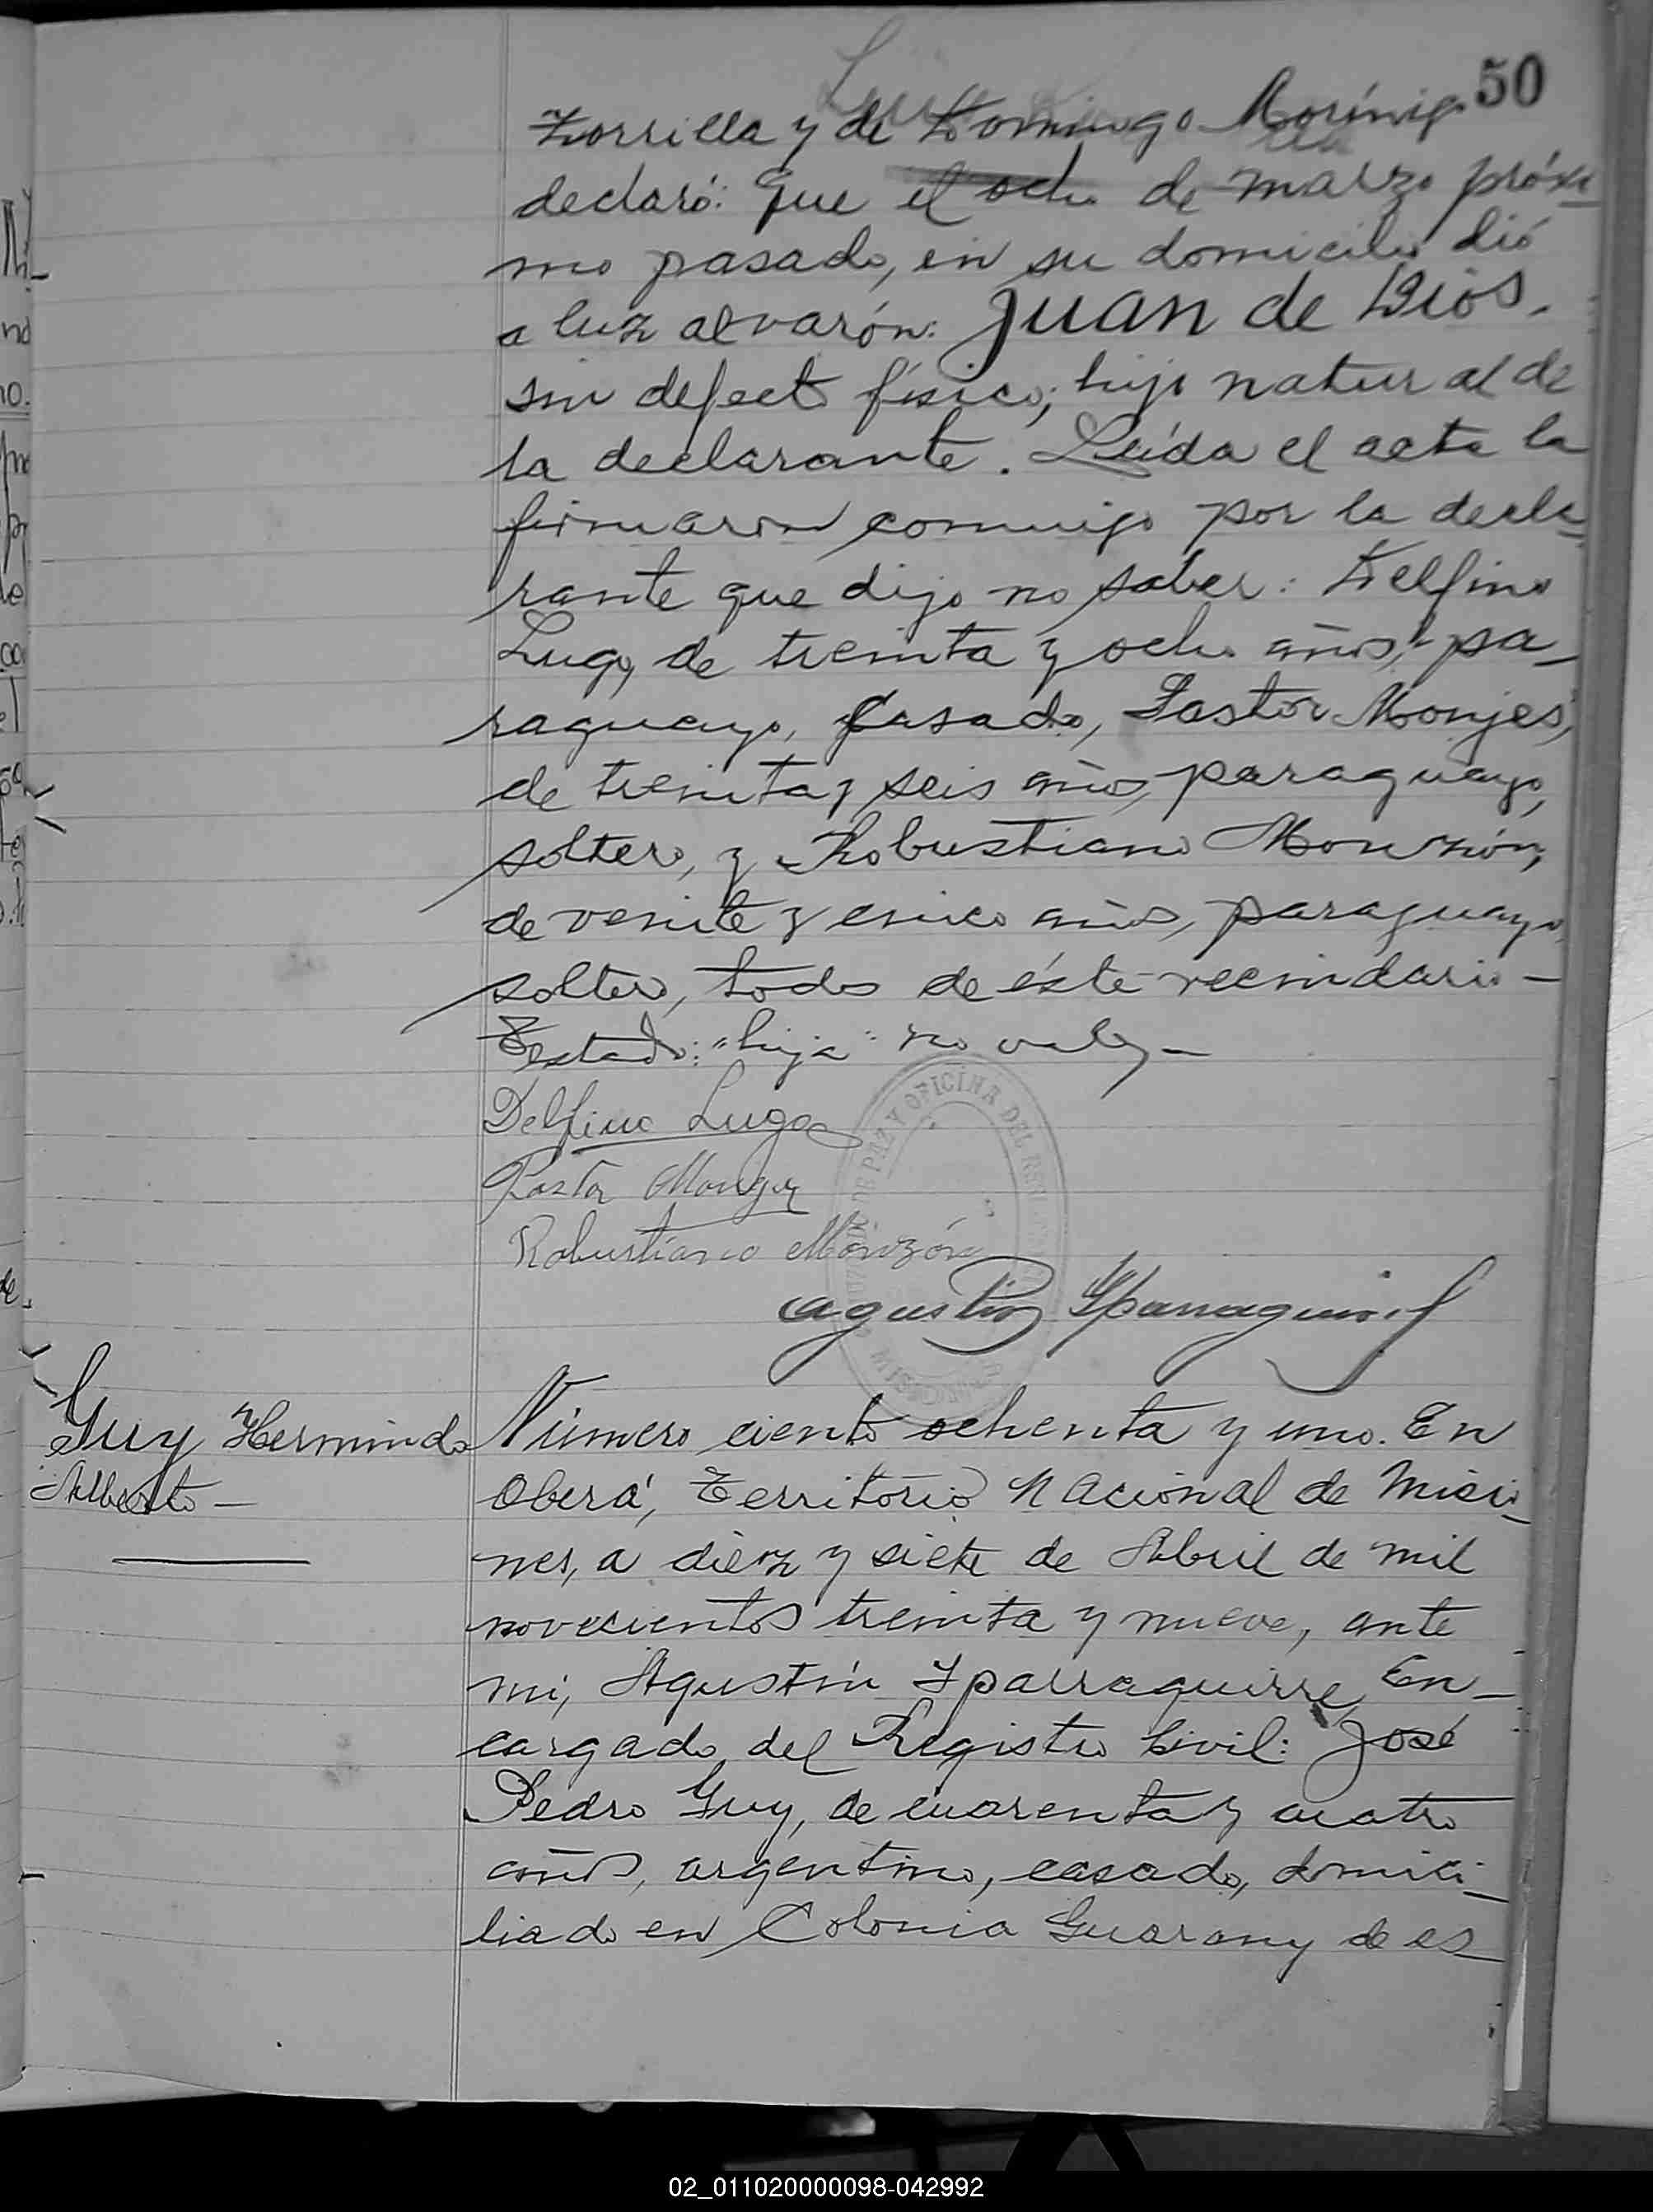 50
Zorrilla y de Domingo Morínigo
declaró: Que el ocho de marzo próxi-
mo pasado, en su domicilio dió
a luz al varón: Juan de Dios.
sin defecto físico; hijo natural de
la declarante. Leída el acta la
firmaron conmigo por la decla-
rante que dijo no saber: Delfino
Lugo, de treinta y ocho años, pa-
raguayo, casado, Pastor Monjes,
de treinta y seis años, paraguayo,
soltero, y Robustiano Monzón,
de veinte y cinco años, paraguayo
soltero, todos de éste vecindario-
Testado: "hija" no vale-
Delfino Lugo
Pastor Monges
Robustiano Monzón
Agustin Yparraguirre
DE PAZ Y OFICINA DEL
MISIONES
Guy Hermindo
Alberto-
Número ciento ochenta y uno. En
Oberá, Territorio Nacional de Misio-
nes, a diez y siete de Abril de mil
novecientos treinta y nueve, ante
mi, Agustín Yparraguirre, En-
cargado del Registro Civil: José
Pedro Guy, de cuarenta y cuatro
años, argentino, casado, domici-
liado en Colonia Guarany de es-
02_011020000098-042992